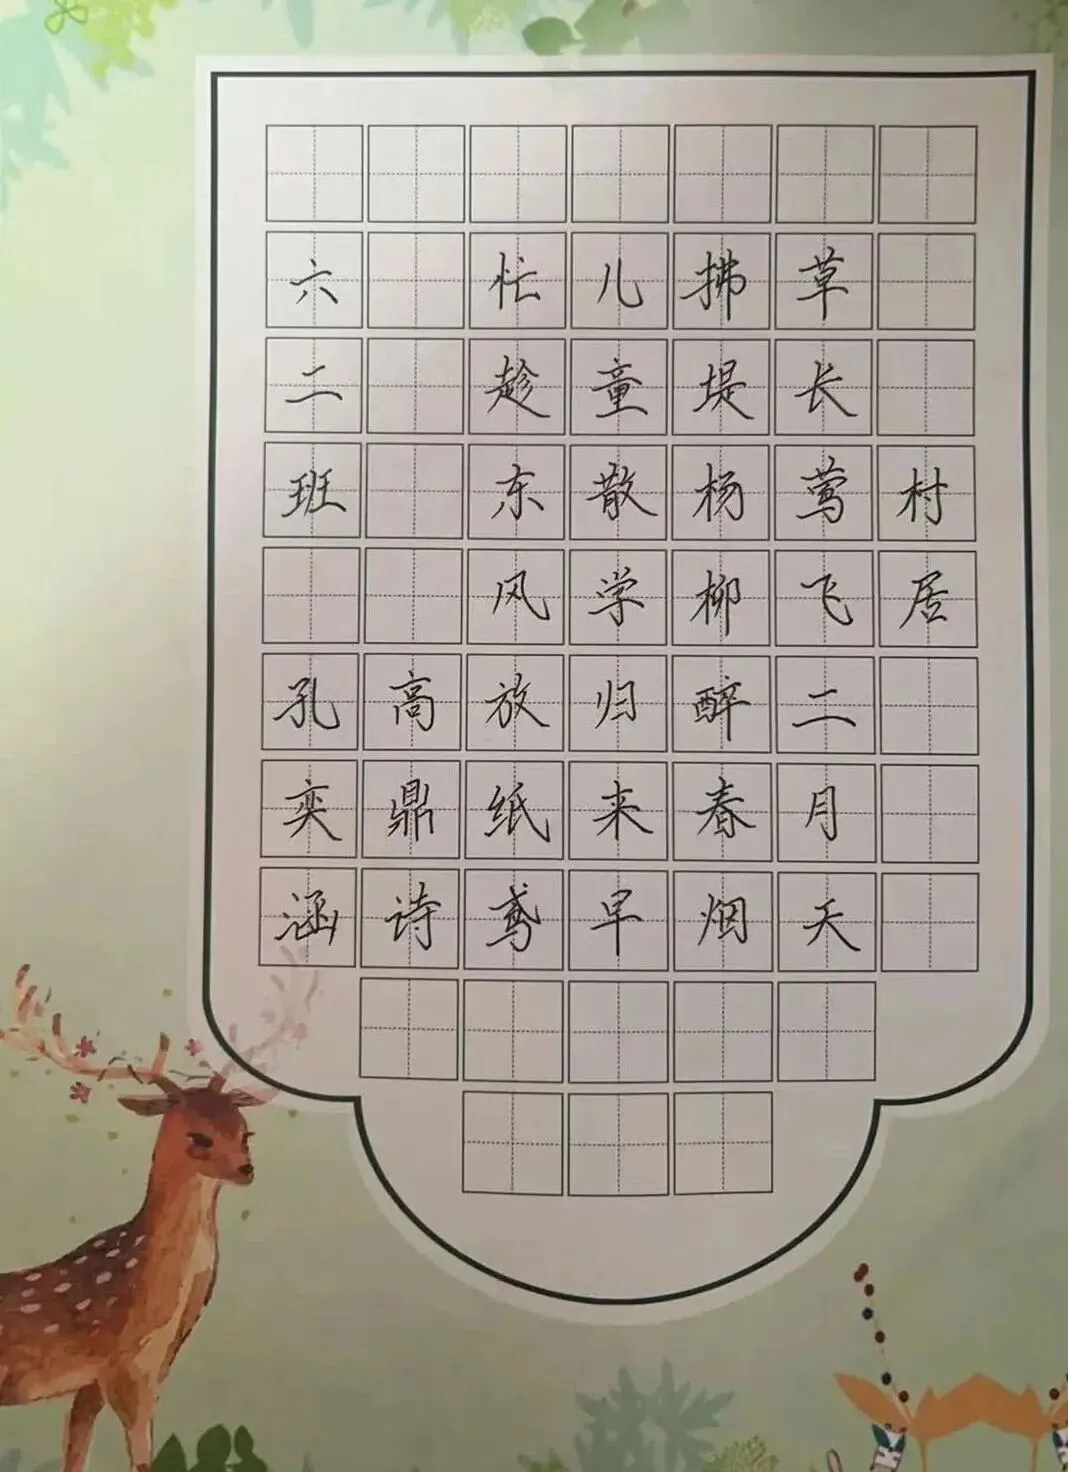 村居
草长莺飞二月天
拂堤杨柳醉春烟
儿童散学归来早
忙趁东风放纸鸢
高鼎诗
六二班 孔奕涵